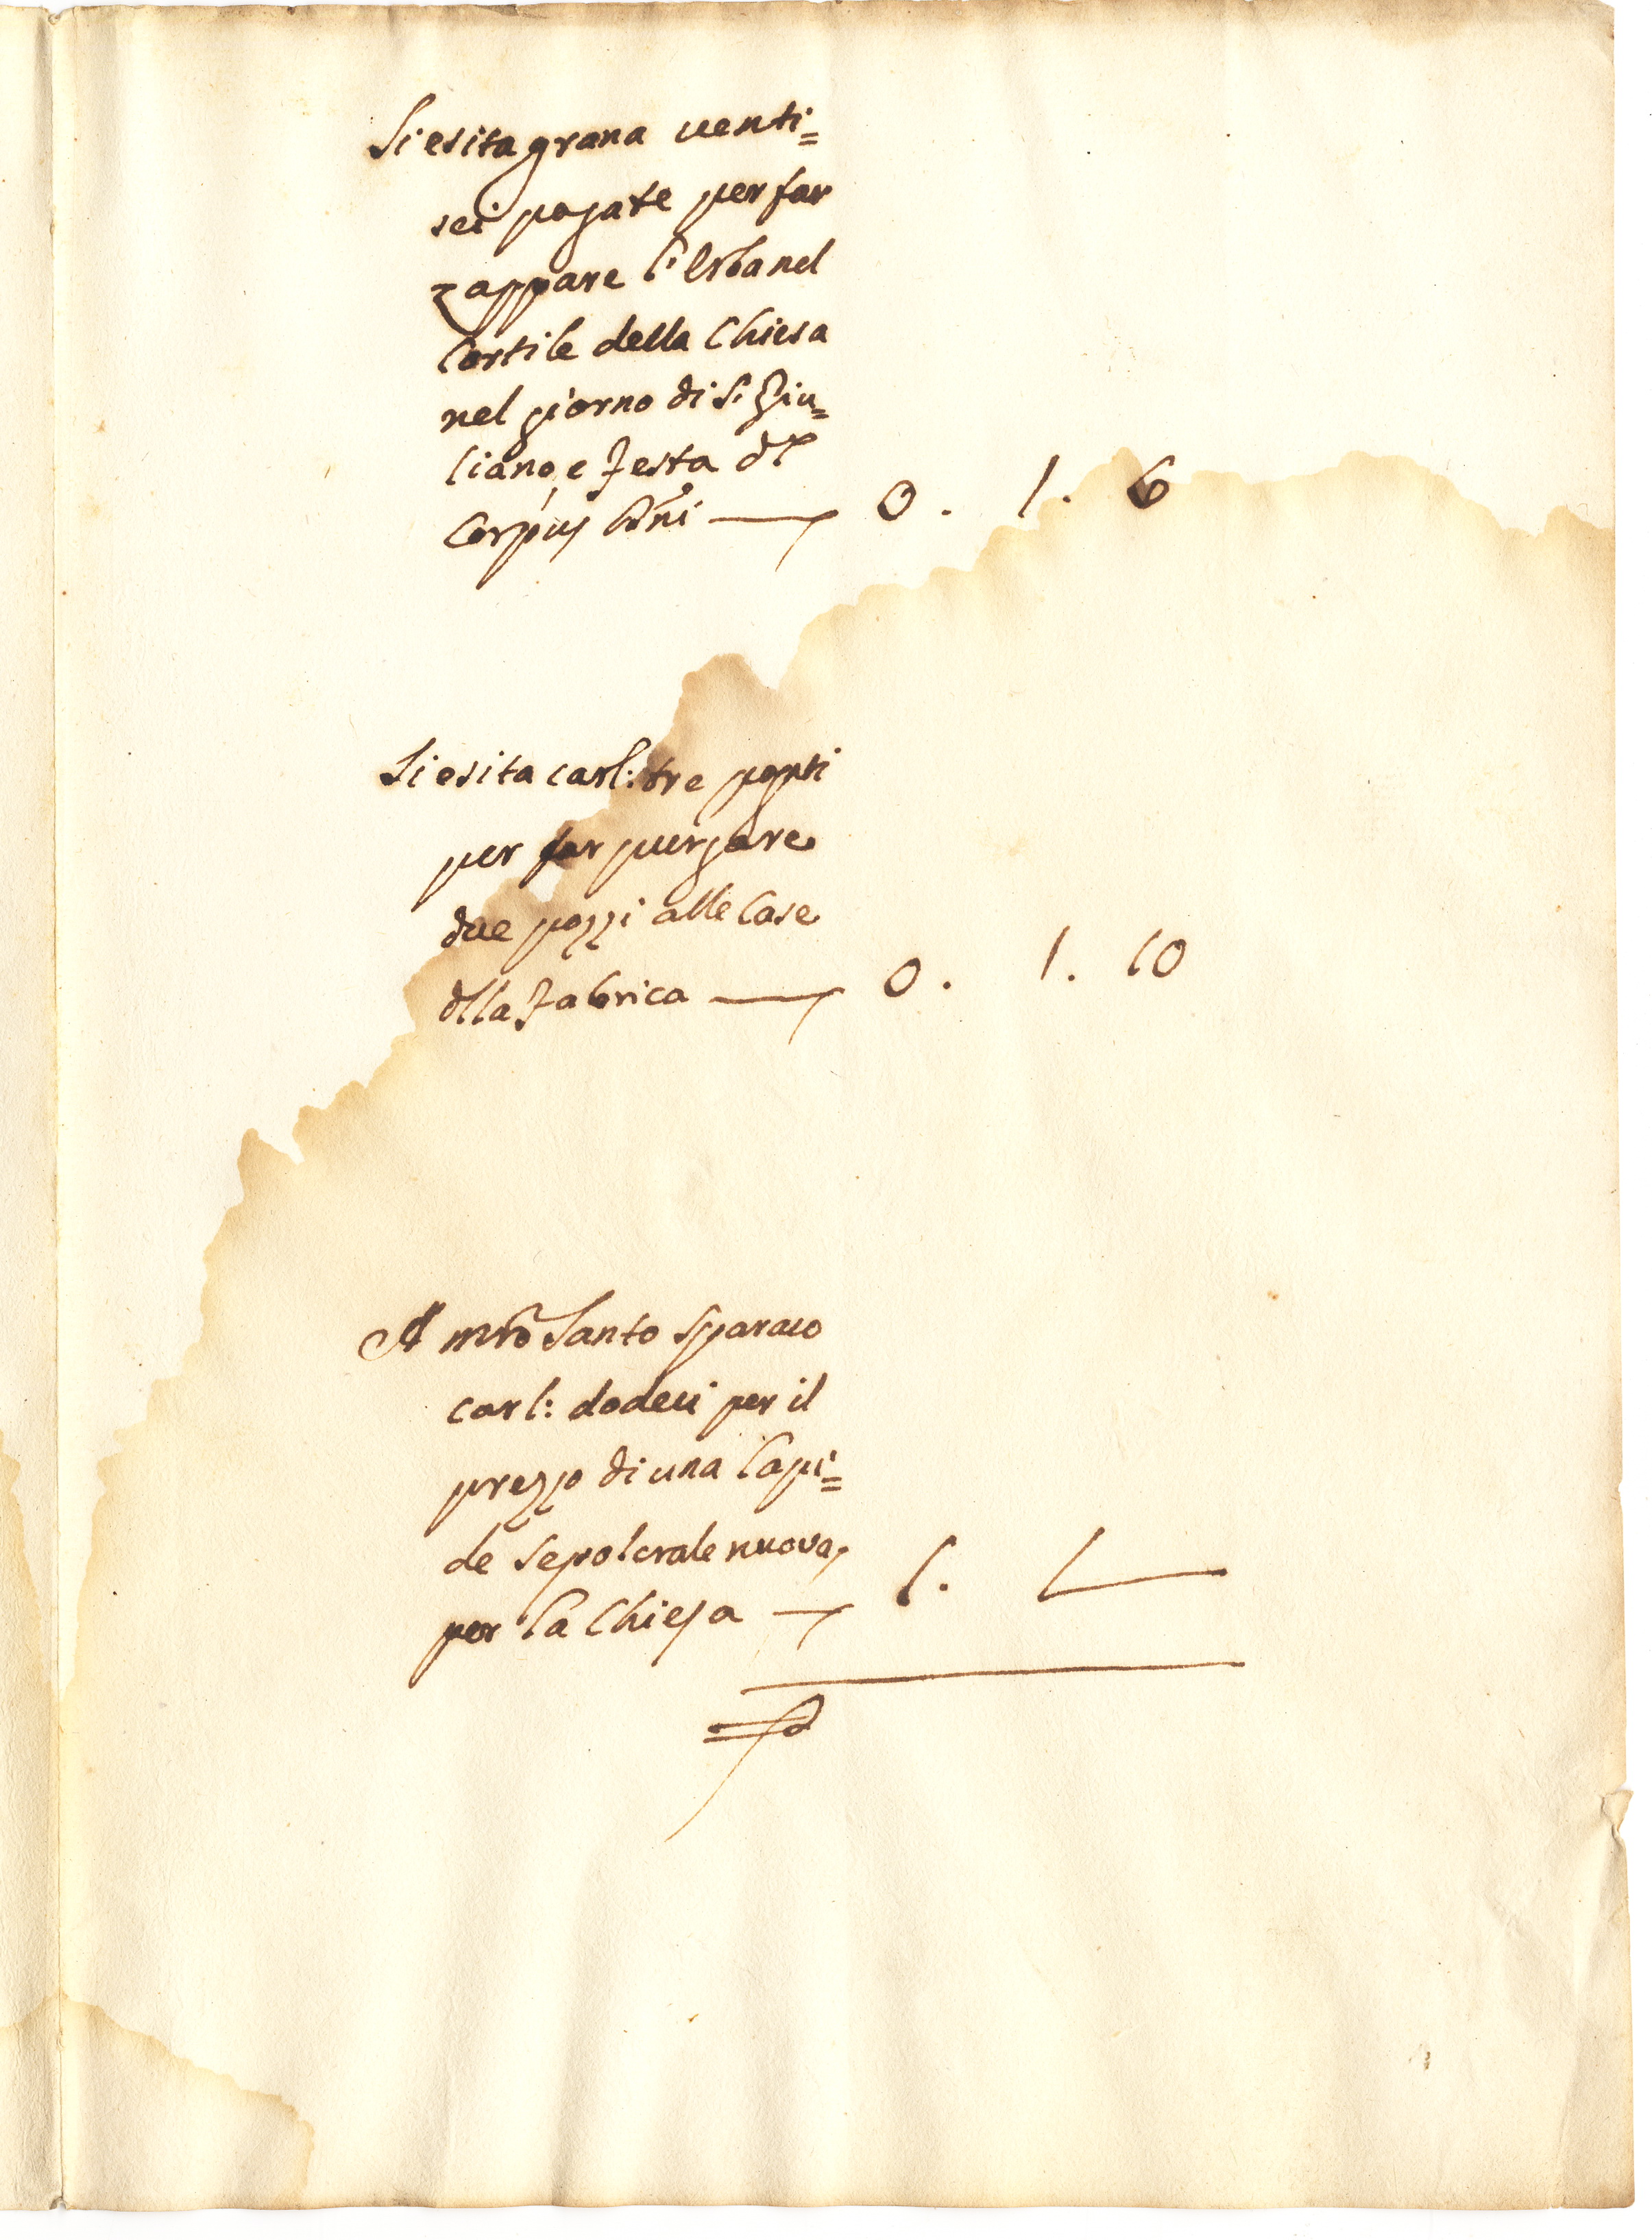 Si esita grana venti=
sei pagate per far
zappare l'Erba nel
Cortile della Chiesa
nel giorno di S. Giu=
liano, e Festa dl
Corpus Dñi — 0. 1. 6
Si esita carl: tre pagati
per far purgare
due pozzi alle Case
dlla Fabrica — 0. 1. 10
A mrõ Santo Sparaco
carl: dodeci per il
prezzo di una lapi=
de sepolcrale nuova,
per la Chiesa — 1. —